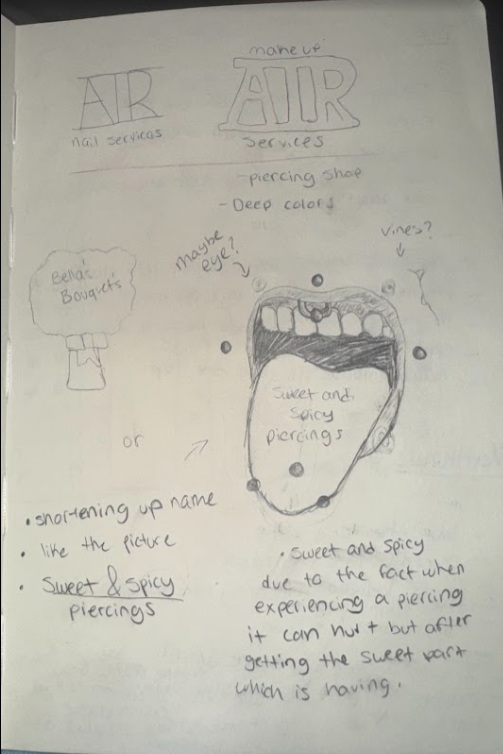 ATR
nail services
makeup
ATR
services
-piercing shop
-Deep colors
maybe
eye?
vines?
Bella's
Bouquets
Sweet and
Spicy
piercings
or
• shortening up name
• like the picture
• Sweet & Spicy
piercings
• Sweet and Spicy
due to the fact when
experiencing a piercing
it can hurt but after
getting the sweet part
which is having.